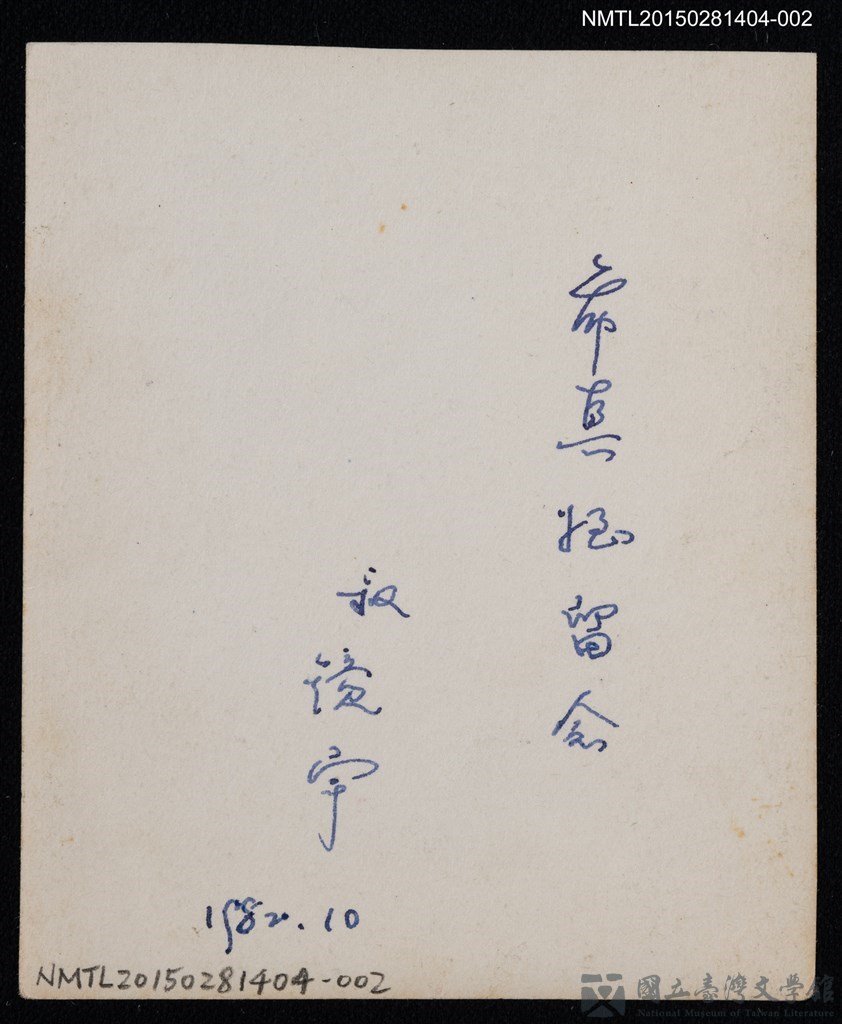 NMTL20150281404-002
真姪留念
叔
镜宇
1982.10
NMTL20150281404-002
國立臺灣文學館
National Museum of Taiwan Literature